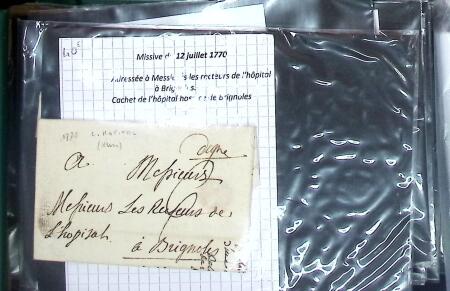 40€
Missive du 12 juillet 1770
Adressée à Messieurs les recteurs de l'hôpital
à Brignoles.
Cachet de l'hôpital de Brignoles
1770
Digne
A Messieurs
Messieurs Les Recteurs de
L'hopitah
à Brignoles